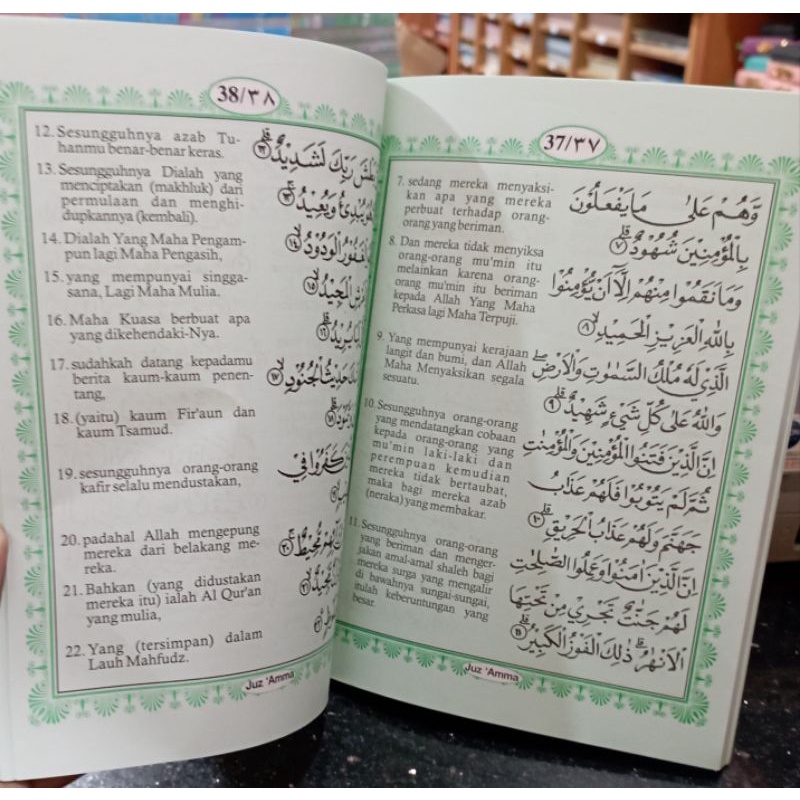 37/٣٧
7. sedang mereka menyaksi-
kan apa yang mereka
perbuat terhadap orang-
orang yang beriman.
8. Dan mereka tidak menyiksa
orang-orang mu'min itu
melainkan karena orang-
orang mu'min itu beriman
kepada Allah Yang Maha
Perkasa lagi Maha Terpuji.
9. Yang mempunyai kerajaan
langit dan bumi, dan Allah
Maha Menyaksikan segala
sesuatu.
10. Sesungguhnya orang-orang
yang mendatangkan cobaan
kepada orang-orang yang
mu'min laki-laki dan
perempuan kemudian
mereka tidak bertaubat,
maka bagi mereka azab
(neraka) yang membakar.
11. Sesungguhnya orang-orang
yang beriman dan menger-
jakan amal-amal shaleh bagi
mereka surga yang mengalir
di bawahnya sungai-sungai,
itulah keberuntungan yang
besar.
وَّهُمْ عَلٰى مَا يَفْعَلُوْنَ
بِالْمُؤْمِنِيْنَ شُهُوْدٌ ۗ ٧
وَمَا نَقَمُوْا مِنْهُمْ اِلَّآ اَنْ يُّؤْمِنُوْا
بِاللّٰهِ الْعَزِيْزِ الْحَمِيْدِ ۙ ٨
الَّذِيْ لَهٗ مُلْكُ السَّمٰوٰتِ وَالْاَرْضِ ۗ
وَاللّٰهُ عَلٰى كُلِّ شَيْءٍ شَهِيْدٌ ۗ ٩
اِنَّ الَّذِيْنَ فَتَنُوا الْمُؤْمِنِيْنَ وَالْمُؤْمِنٰتِ
ثُمَّ لَمْ يَتُوْبُوْا فَلَهُمْ عَذَابُ
جَهَنَّمَ وَلَهُمْ عَذَابُ الْحَرِيْقِ ۗ ١٠
اِنَّ الَّذِيْنَ اٰمَنُوْا وَعَمِلُوا الصّٰلِحٰتِ
لَهُمْ جَنّٰتٌ تَجْرِيْ مِنْ تَحْتِهَا
الْاَنْهٰرُ ۗ ذٰلِكَ الْفَوْزُ الْكَبِيْرُ ۗ ١١
Juz 'Amma
38/٣٨
12. Sesungguhnya azab Tu-
hanmu benar-benar keras.
13. Sesungguhnya Dialah yang
menciptakan (makhluk) dari
permulaan dan menghi-
dupkannya (kembali).
14. Dialah Yang Maha Pengam-
pun lagi Maha Pengasih,
15. yang mempunyai singga-
sana, Lagi Maha Mulia.
16. Maha Kuasa berbuat apa
yang dikehendaki-Nya.
17. sudahkah datang kepadamu
berita kaum-kaum penen-
tang,
18. (yaitu) kaum Fir'aun dan
kaum Tsamud.
19. sesungguhnya orang-orang
kafir selalu mendustakan,
20. padahal Allah mengepung
mereka dari belakang me-
reka.
21. Bahkan (yang didustakan
mereka itu) ialah Al Qur'an
yang mulia,
22. Yang (tersimpan) dalam
Lauh Mahfudz.
رَبِّكَ لَشَدِيْدٌ ۗ ١٢
يُبْدِئُ وَيُعِيْدُ ۚ ١٣
الْوَدُوْدُ ۙ ١٤
الْمَجِيْدُ ۙ ١٥
يُرِيْدُ ۗ ١٦
حَدِيْثُ الْجُنُوْدِ ۙ ١٧
١٨
كَفَرُوْا فِيْ
مُّحِيْطٌ ۚ ٢٠
Juz 'Amma